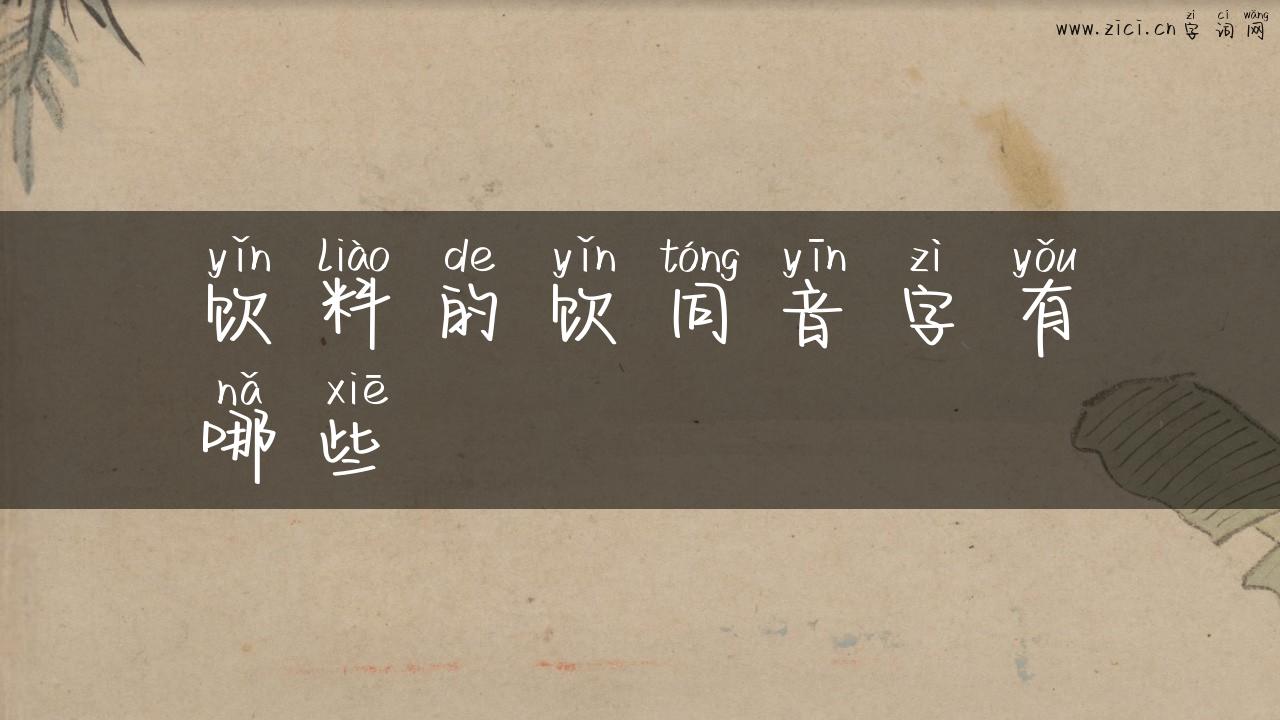 zì cí wǎng
www.zici.cn 字词网
yǐn liào de yǐn tóng yīn zì yǒu
饮料的饮同音字有
nǎ xiē
哪些